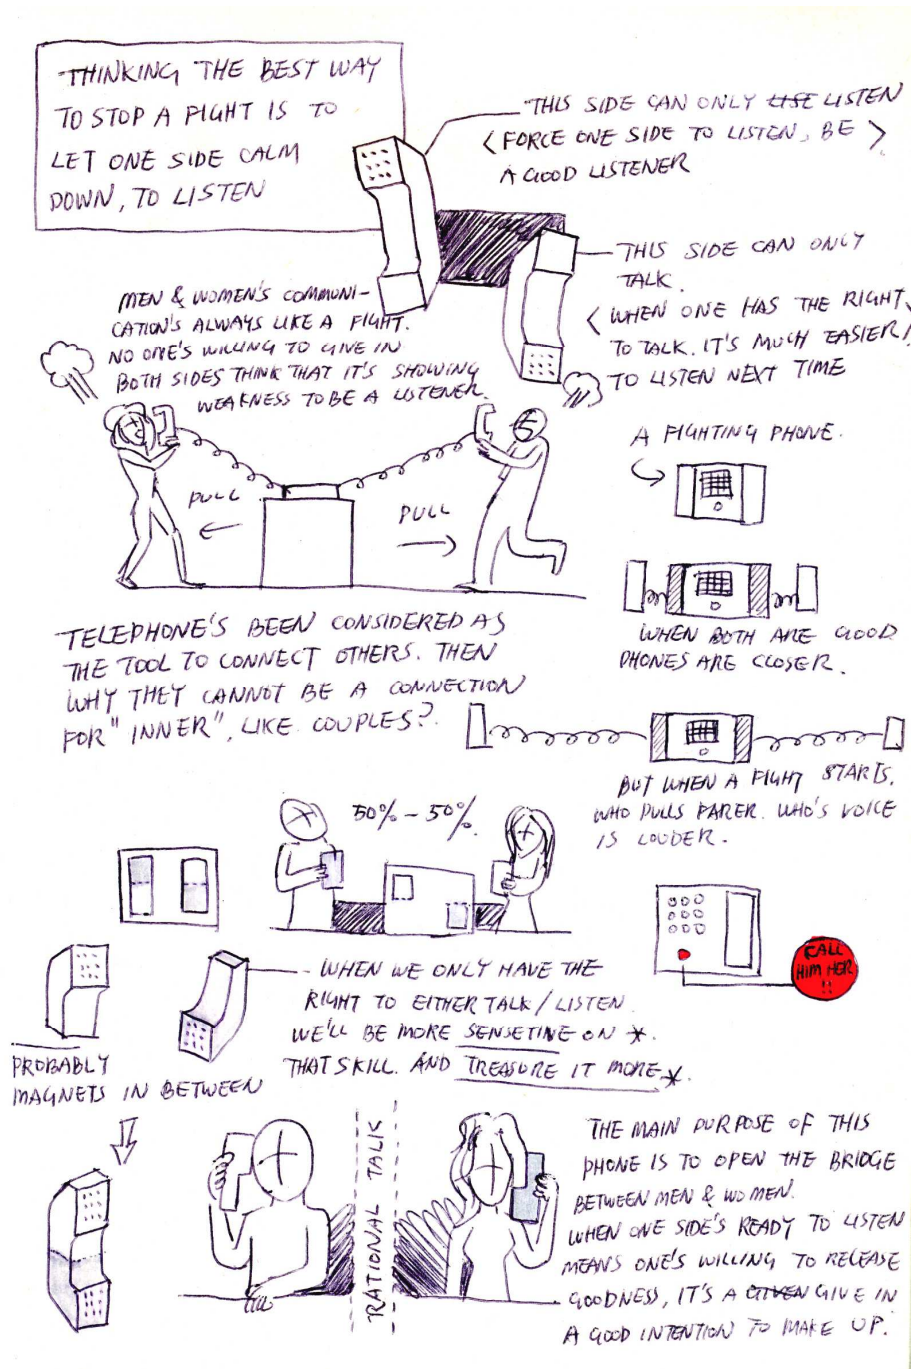 THINKING THE BEST WAY
TO STOP A FIGHT IS TO
LET ONE SIDE CALM
DOWN, TO LISTEN
THIS SIDE CAN ONLY USE LISTEN
<FORCE ONE SIDE TO LISTEN, BE>
A GOOD LISTENER
THIS SIDE CAN ONLY
TALK.
<WHEN ONE HAS THE RIGHT>
TO TALK. IT'S MUCH EASIER
TO LISTEN NEXT TIME
MEN & WOMEN'S COMMUNI-
CATION'S ALWAYS LIKE A FIGHT.
NO ONE'S WILLING TO GIVE IN
BOTH SIDES THINK THAT IT'S SHOWING
WEAKNESS TO BE A LISTENER.
PULL
PULL
A FIGHTING PHONE.
WHEN BOTH ARE GOOD
PHONES ARE CLOSER.
TELEPHONE'S BEEN CONSIDERED AS
THE TOOL TO CONNECT OTHERS. THEN
WHY THEY CANNOT BE A CONNECTION
FOR "INNER", LIKE COUPLES?
BUT WHEN A FIGHT STARTS.
WHO PULLS FARER. WHO'S VOICE
IS LOUDER.
50% - 50%.
CALL
HIM HER
!!
WHEN WE ONLY HAVE THE
RIGHT TO EITHER TALK / LISTEN
WE'LL BE MORE SENSETINE ON *.
THAT SKILL. AND TREASURE IT MORE *.
PROBABLY
MAGNETS IN BETWEEN
RATIONAL TALK
THE MAIN PURPOSE OF THIS
PHONE IS TO OPEN THE BRIDGE
BETWEEN MEN & WOMEN.
WHEN ONE SIDE'S READY TO LISTEN
MEANS ONE'S WILLING TO RELEASE
GOODNESS, IT'S A GIVEN GIVE IN
A GOOD INTENTION TO MAKE UP.